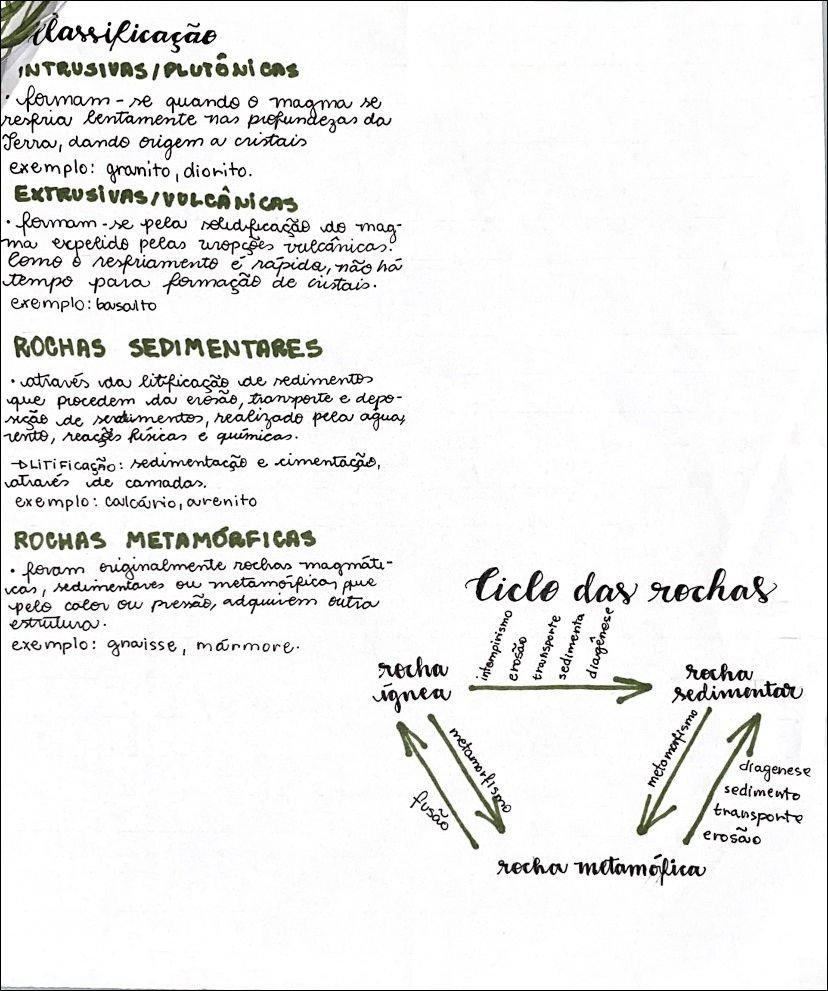 Classificação
INTRUSIVAS/PLUTÔNICAS
• formam-se quando o magma se
resfria lentamente nas profundezas da
Terra, dando origem a cristais
exemplo: granito, diorito.
EXTRUSIVAS/VULCÂNICAS
• formam-se pela solidificação do mag-
ma expelido pelas uropções vulcânicas.
Como o resfriamento é rápida, não há
tempo para formação de cristais.
exemplo: basalto
ROCHAS SEDIMENTARES
• através da litificação de sedimentos
que procedem da erosão, transporte e depo-
sição de sedimentos, realizado pela água,
vento, reações físicas e químicas.
→ LITIFICAÇÃO: sedimentação e cimentação,
através de camadas.
exemplo: calcário, arenito
ROCHAS METAMÓRFICAS
• foram originalmente rochas magmáti-
cas, sedimentares ou metamórficas, que
pelo calor ou pressão, adquirem outra
estrutura.
exemplo: gnaisse, mármore.
Ciclo das rochas
intempirismo
erosão
transporte
sedimenta
diagênese
rocha
ígnea
rocha
sedimentar
metamorfismo
fusão
metamorfismo
diagenese
sedimento
transporte
erosão
rocha metamófica